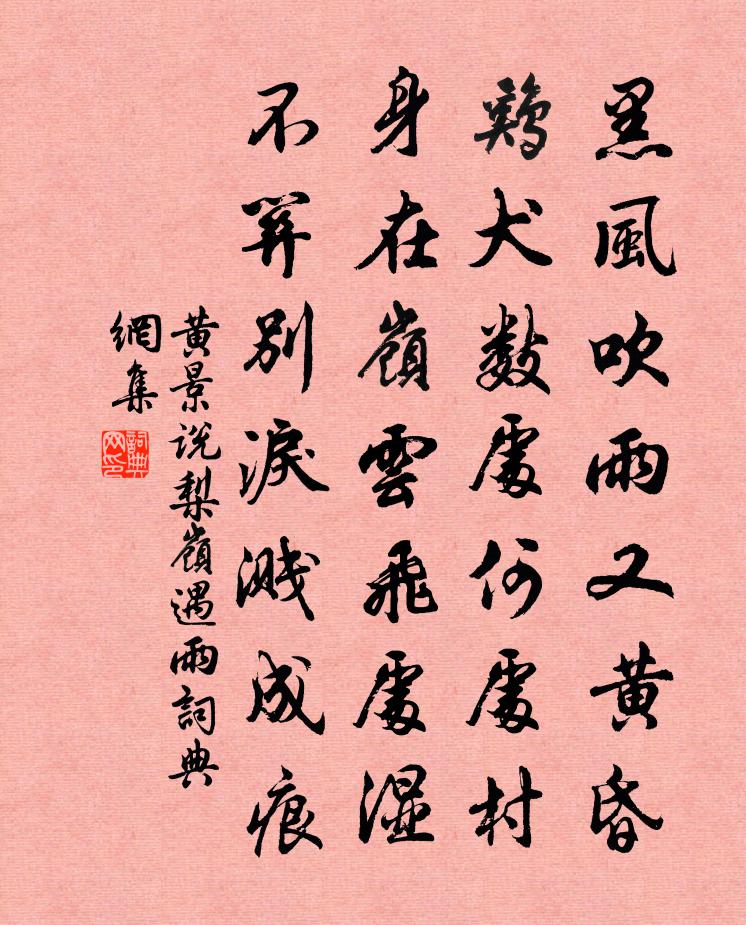 黑風吹雨又黄昏
鶏犬數處何處村
身在嶺雲飛處濕
不筭別淚濺成痕
黄景説梨嶺遇雨詞典
網集
詞典
网印